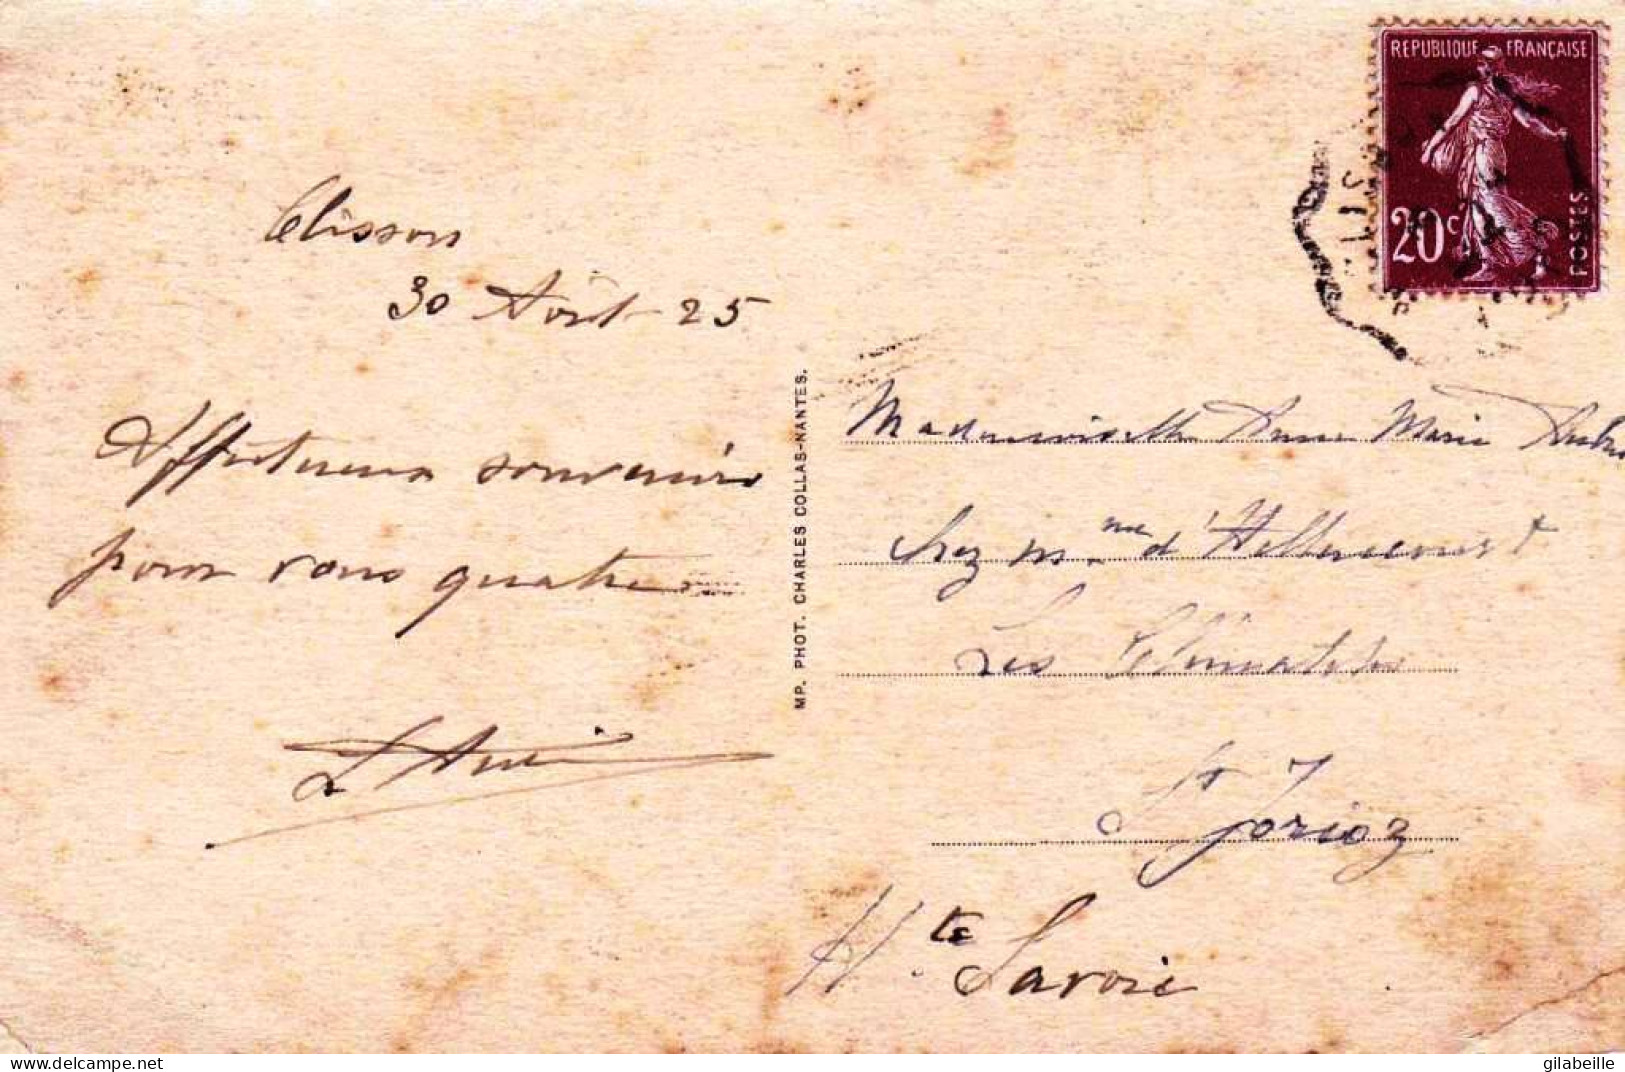 Clisson
30 Août 25
Affectueux souvenirs
pour vous quatre
MP. PHOT. CHARLES COLLAS-NANTES.
REPUBLIQUE FRANÇAISE
20c
POSTES
Mademoiselle Anne Marie
Chez Mme d'
Les Clématites
St Jorioz
Hte Savoie
delcampe.net
gilabeille